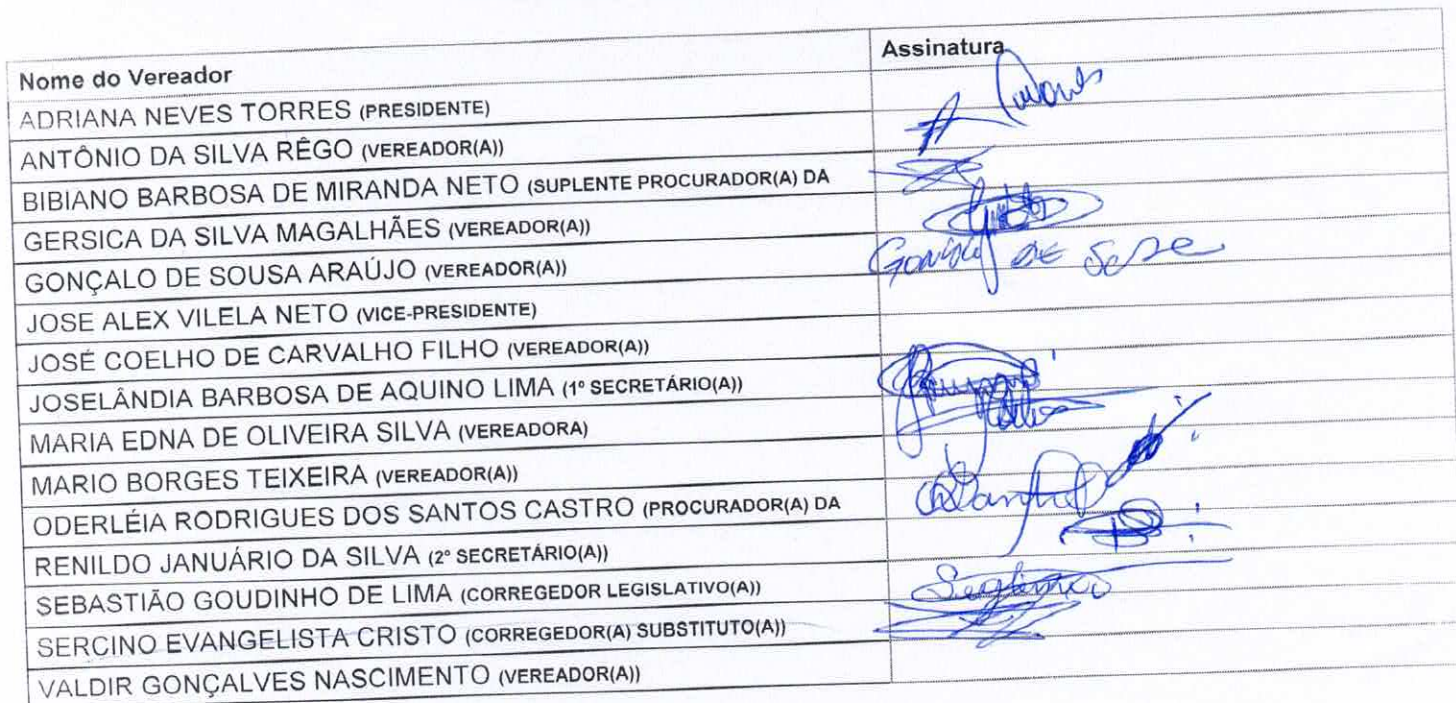 Nome do Vereador Assinatura
ADRIANA NEVES TORRES (PRESIDENTE)
ANTÔNIO DA SILVA RÊGO (VEREADOR(A))
BIBIANO BARBOSA DE MIRANDA NETO (SUPLENTE PROCURADOR(A) DA
GERSICA DA SILVA MAGALHÃES (VEREADOR(A))
GONÇALO DE SOUSA ARAÚJO (VEREADOR(A)) DE
JOSE ALEX VILELA NETO (VICE-PRESIDENTE)
JOSÉ COELHO DE CARVALHO FILHO (VEREADOR(A))
JOSELÂNDIA BARBOSA DE AQUINO LIMA (1º SECRETÁRIO(A))
MARIA EDNA DE OLIVEIRA SILVA (VEREADORA)
MARIO BORGES TEIXEIRA (VEREADOR(A))
ODERLÉIA RODRIGUES DOS SANTOS CASTRO (PROCURADOR(A) DA
RENILDO JANUÁRIO DA SILVA (2º SECRETÁRIO(A))
SEBASTIÃO GOUDINHO DE LIMA (CORREGEDOR LEGISLATIVO(A))
SERCINO EVANGELISTA CRISTO (CORREGEDOR(A) SUBSTITUTO(A))
VALDIR GONÇALVES NASCIMENTO (VEREADOR(A))